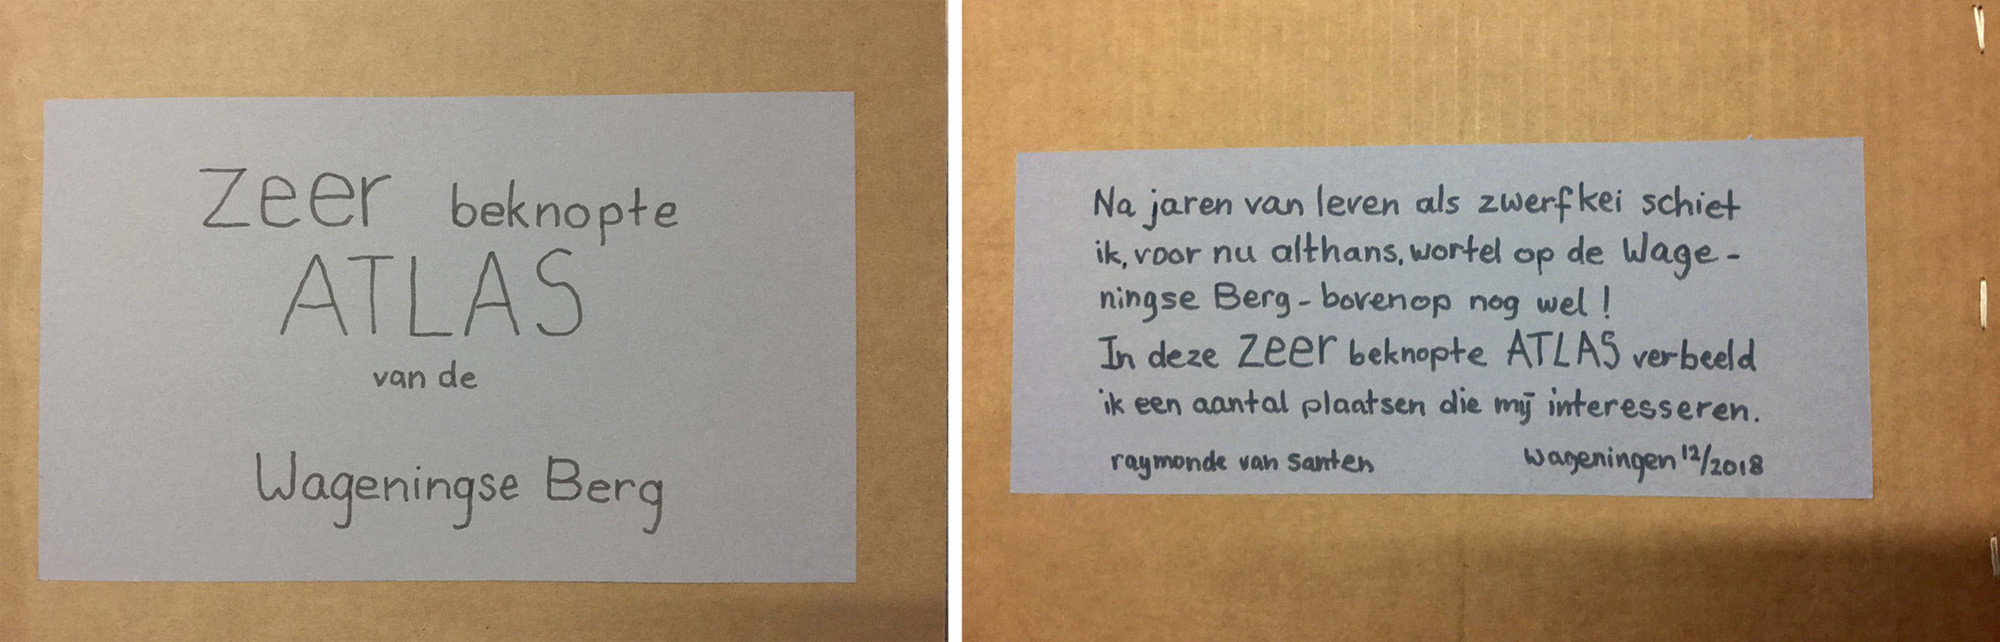 Zeer beknopte
ATLAS
van de
Wageningse Berg
Na jaren van leven als zwerfkei schiet
ik, voor nu althans, wortel op de Wage-
ningse Berg - bovenop nog wel !
In deze Zeer beknopte ATLAS verbeeld
ik een aantal plaatsen die mij interesseren.
raymonde van Santen Wageningen 12/2018